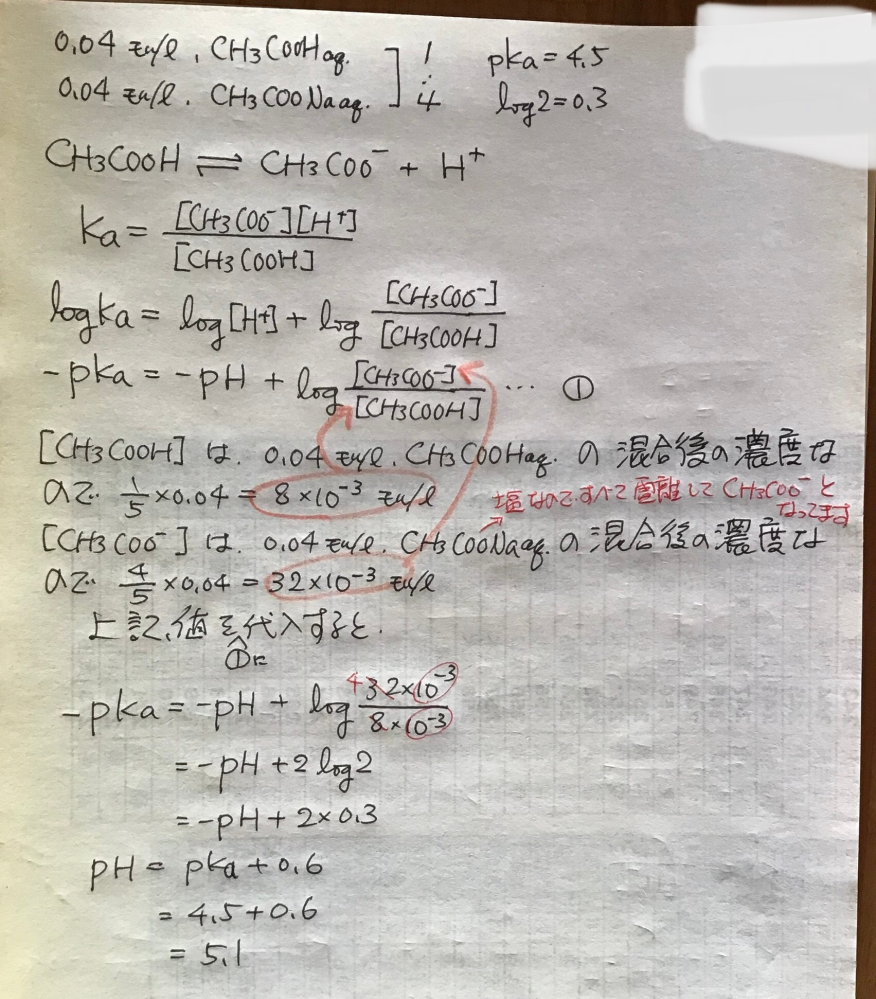 0.04 モル/l, CH3COOHaq. ] 1 pka = 4.5
0.04 モル/l. CH3COONaaq. ] : 4 log2=0.3
CH3COOH ⇌ CH3COO⁻ + H⁺
Ka = [CH3COO⁻][H⁺] / [CH3COOH]
logKa = log[H⁺] + log [CH3COO⁻] / [CH3COOH]
-pka = -pH + log [CH3COO⁻] / [CH3COOH] … ①
[CH3COOH] は. 0.04 モル/l. CH3COOHaq. の 混合後の濃度な
ので 1/5 × 0.04 = 8×10⁻³ モル/l
塩なので.すべて電離して CH3COO⁻ と
なってます
[CH3COO⁻] は. 0.04 モル/l. CH3COONaaq. の混合後の濃度な
ので 4/5 × 0.04 = 32×10⁻³ モル/l
上記、値を代入すると.
①に
-pka = -pH + log 32×10⁻³ / 8×10⁻³
4
= -pH + 2 log2
= -pH + 2×0.3
pH = pka + 0.6
= 4.5 + 0.6
= 5.1